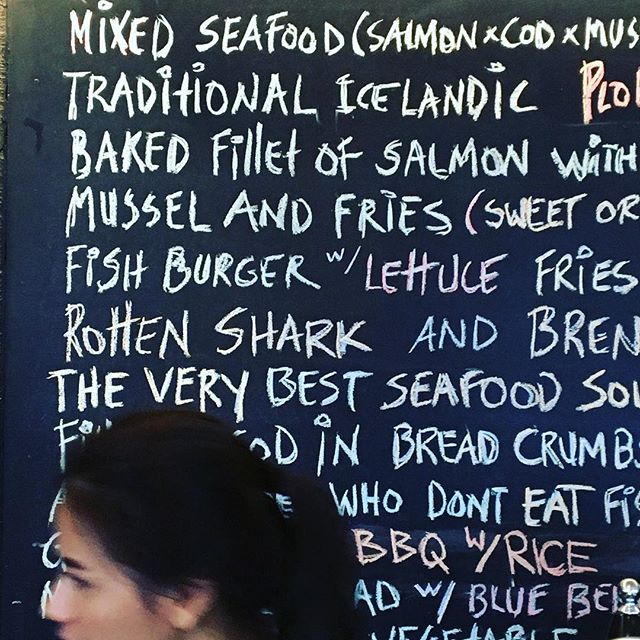 MIXED SEAFOOD (SALMON x COD x MUS
TRADITIONAL ICELANDIC PLO
BAKED FILLET OF SALMON WITH
MUSSEL AND FRIES (SWEET OR
FISH BURGER W/ LETTUCE FRIES
ROTTEN SHARK AND BREN
THE VERY BEST SEAFOOD SOU
IN BREAD CRUMBS
WHO DONT EAT FIS
BBQ W/ RICE
AD W/ BLUE BE
VEGETABLE